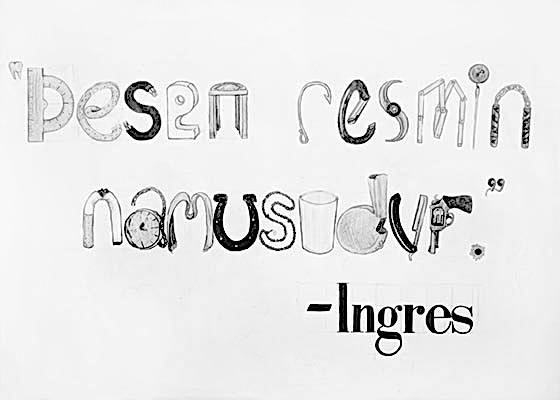 "Desen resmin
namusudur."
-Ingres